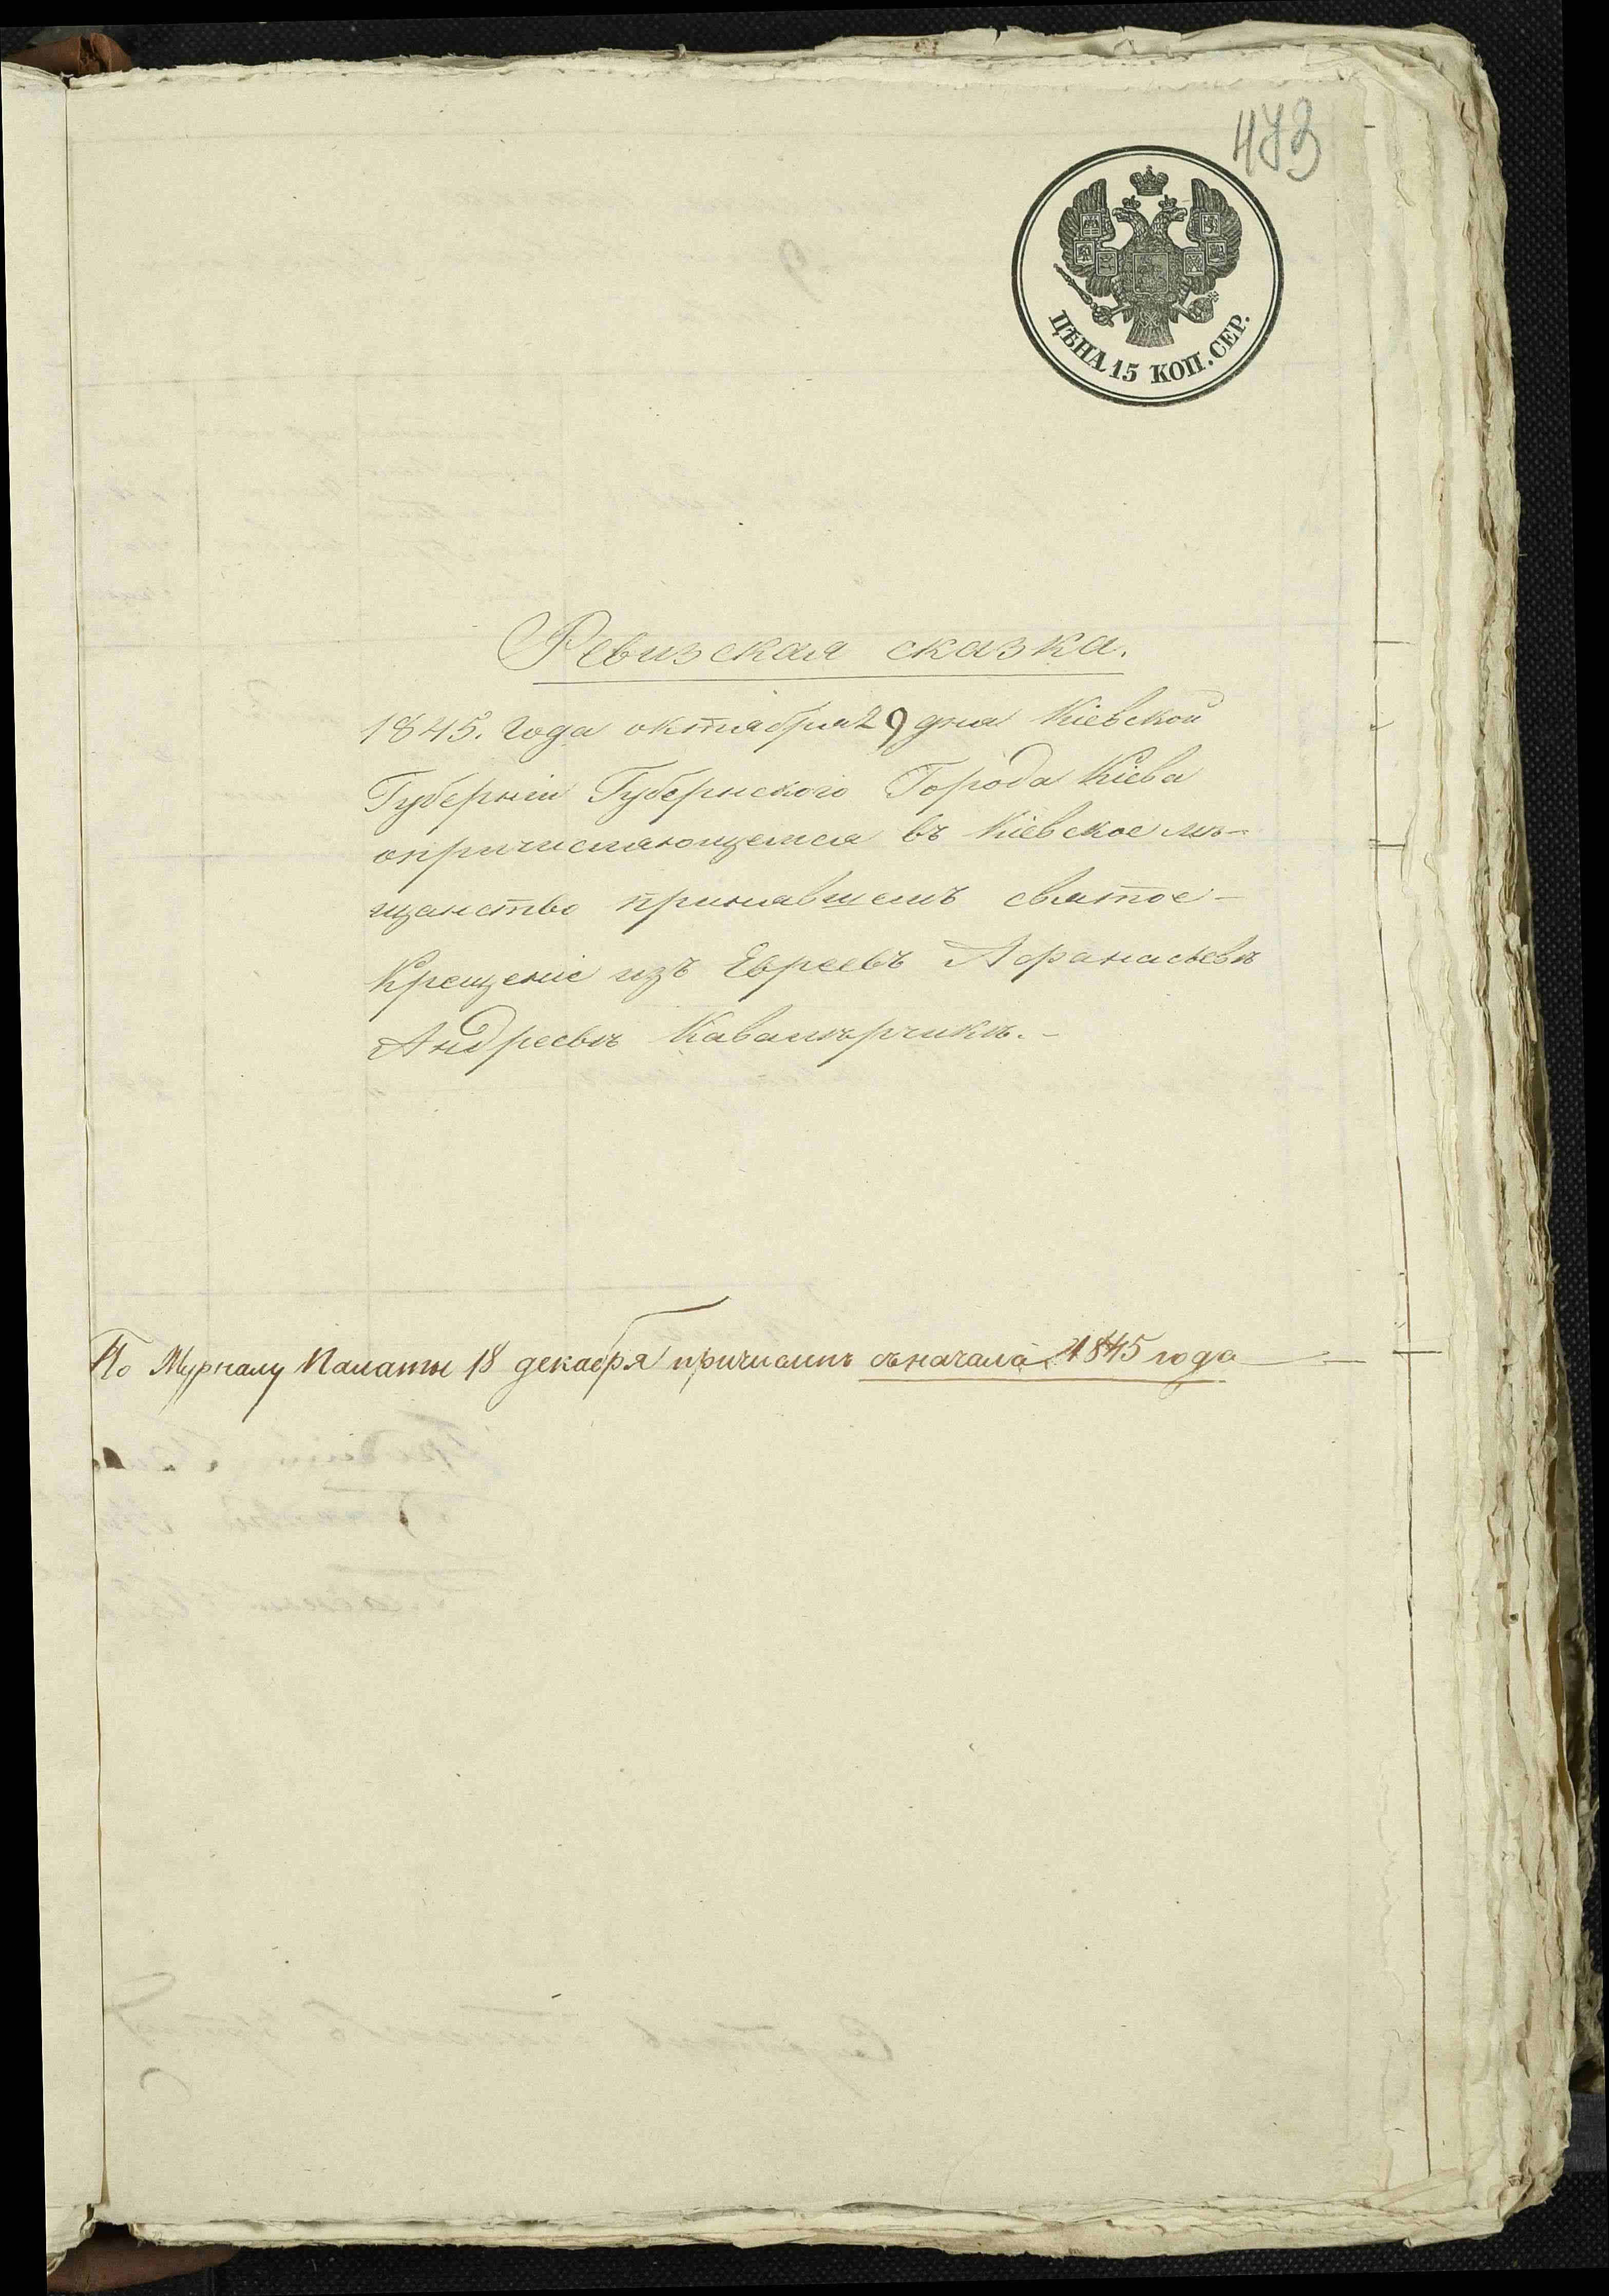 473
ЦѢНА 15 КОП. СЕР.
Ревизская сказка.
1845. Года октября 29 дня Кіевской
Губерніи Губернского Города Кіева
опричисляющемся въ Кіевское мѣ-
щанство принявшемъ святое-
Крещеніе изъ Евреевъ Афанасьевѣ
Андреевѣ Кавалѣрчикѣ.-
По Журналу Палаты 18 декабря причисленъ съ начала 1845 года